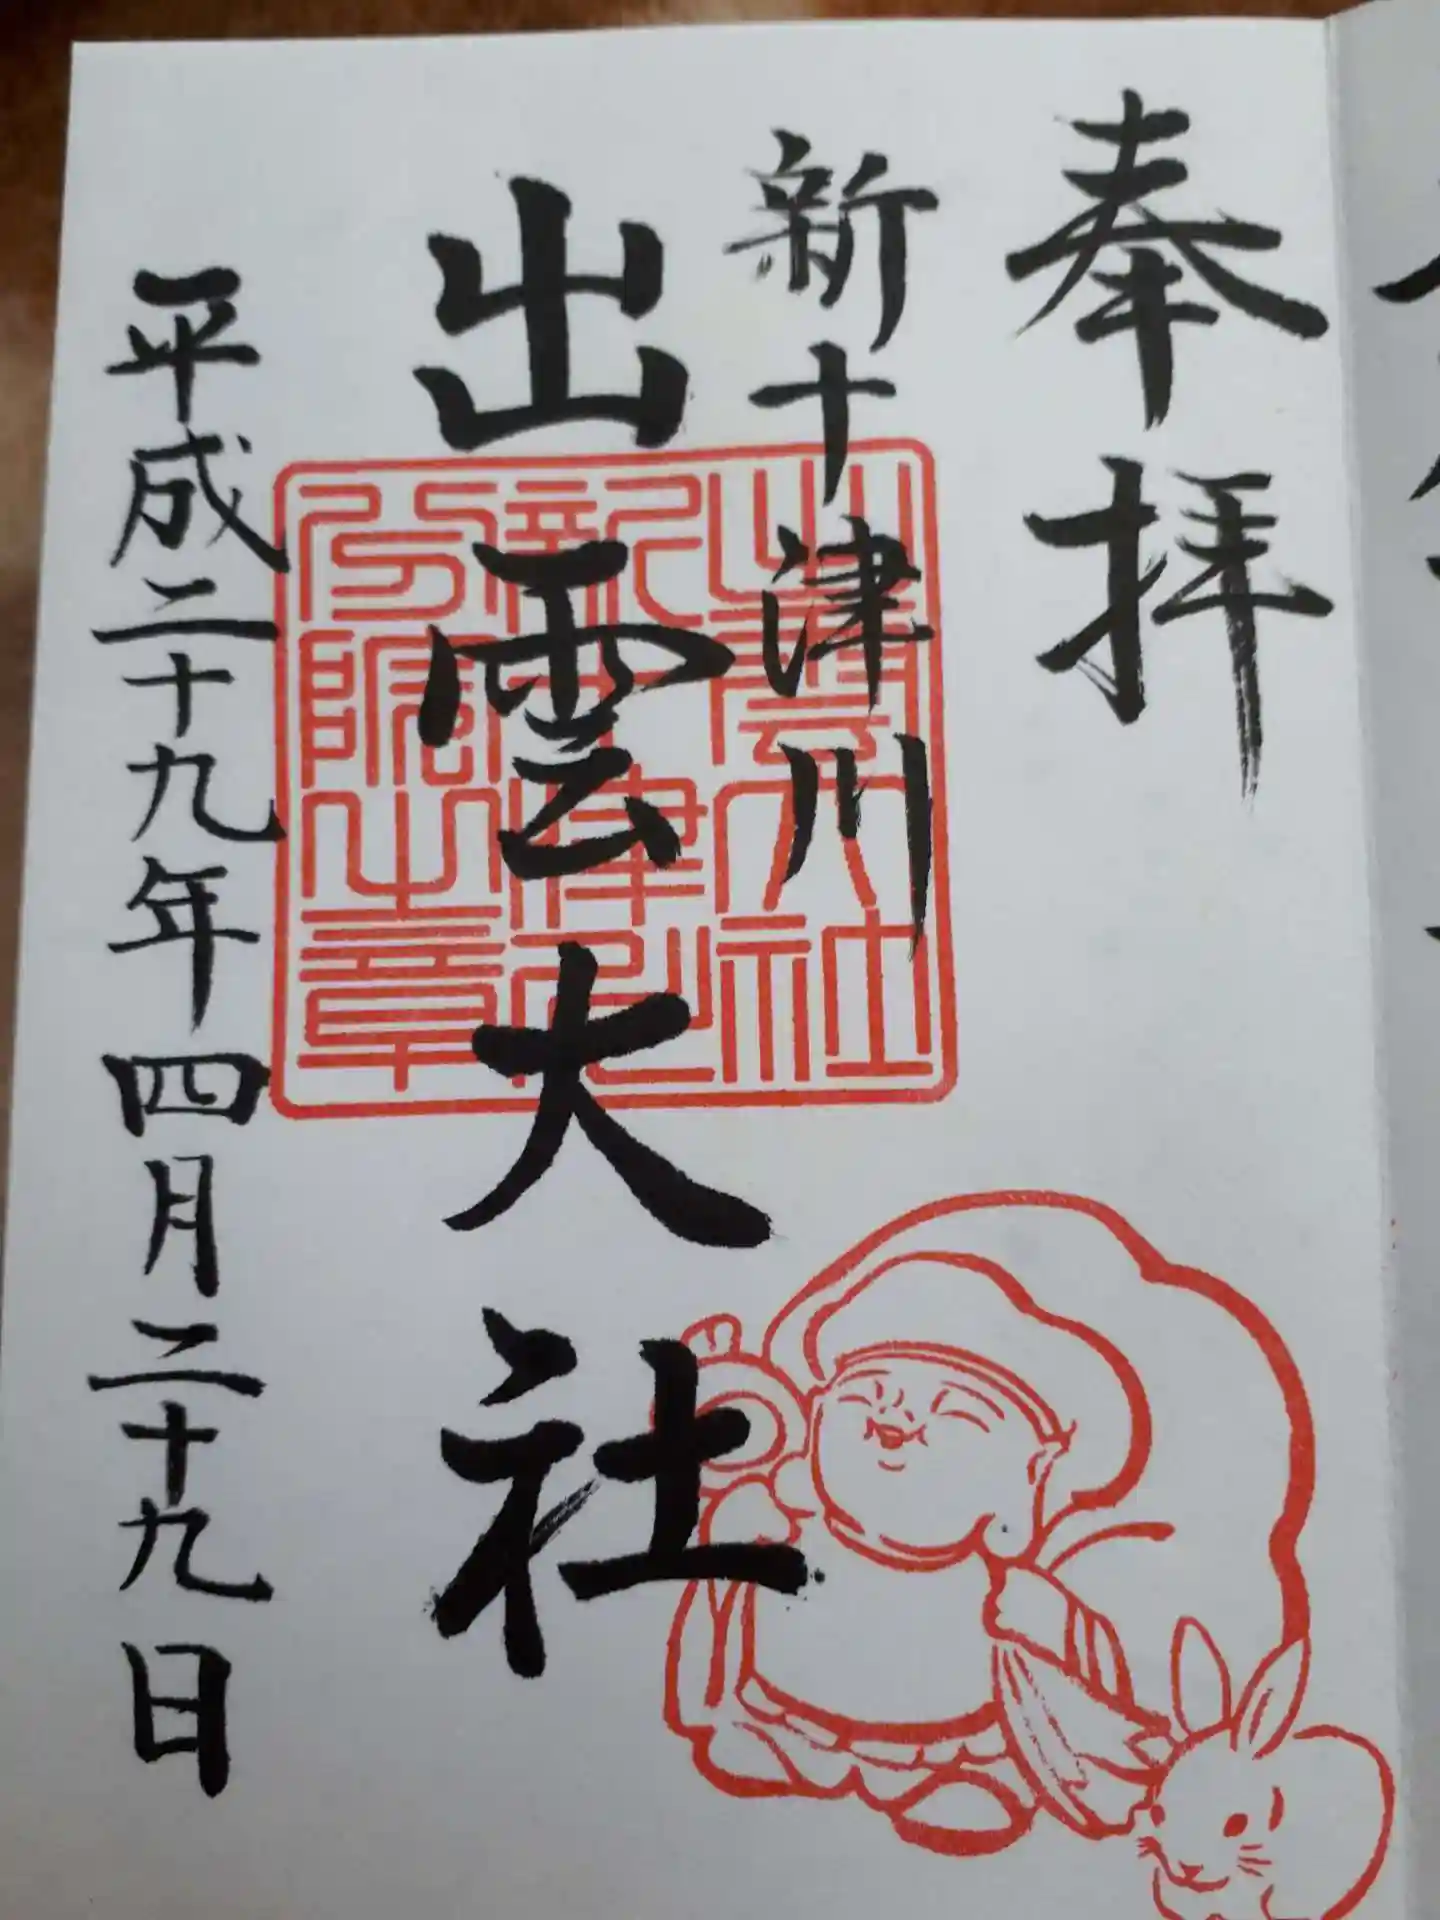 奉拝
新十津川
出雲大社
平成二十九年四月二十九日
出雲大社
新十津川
分院之章